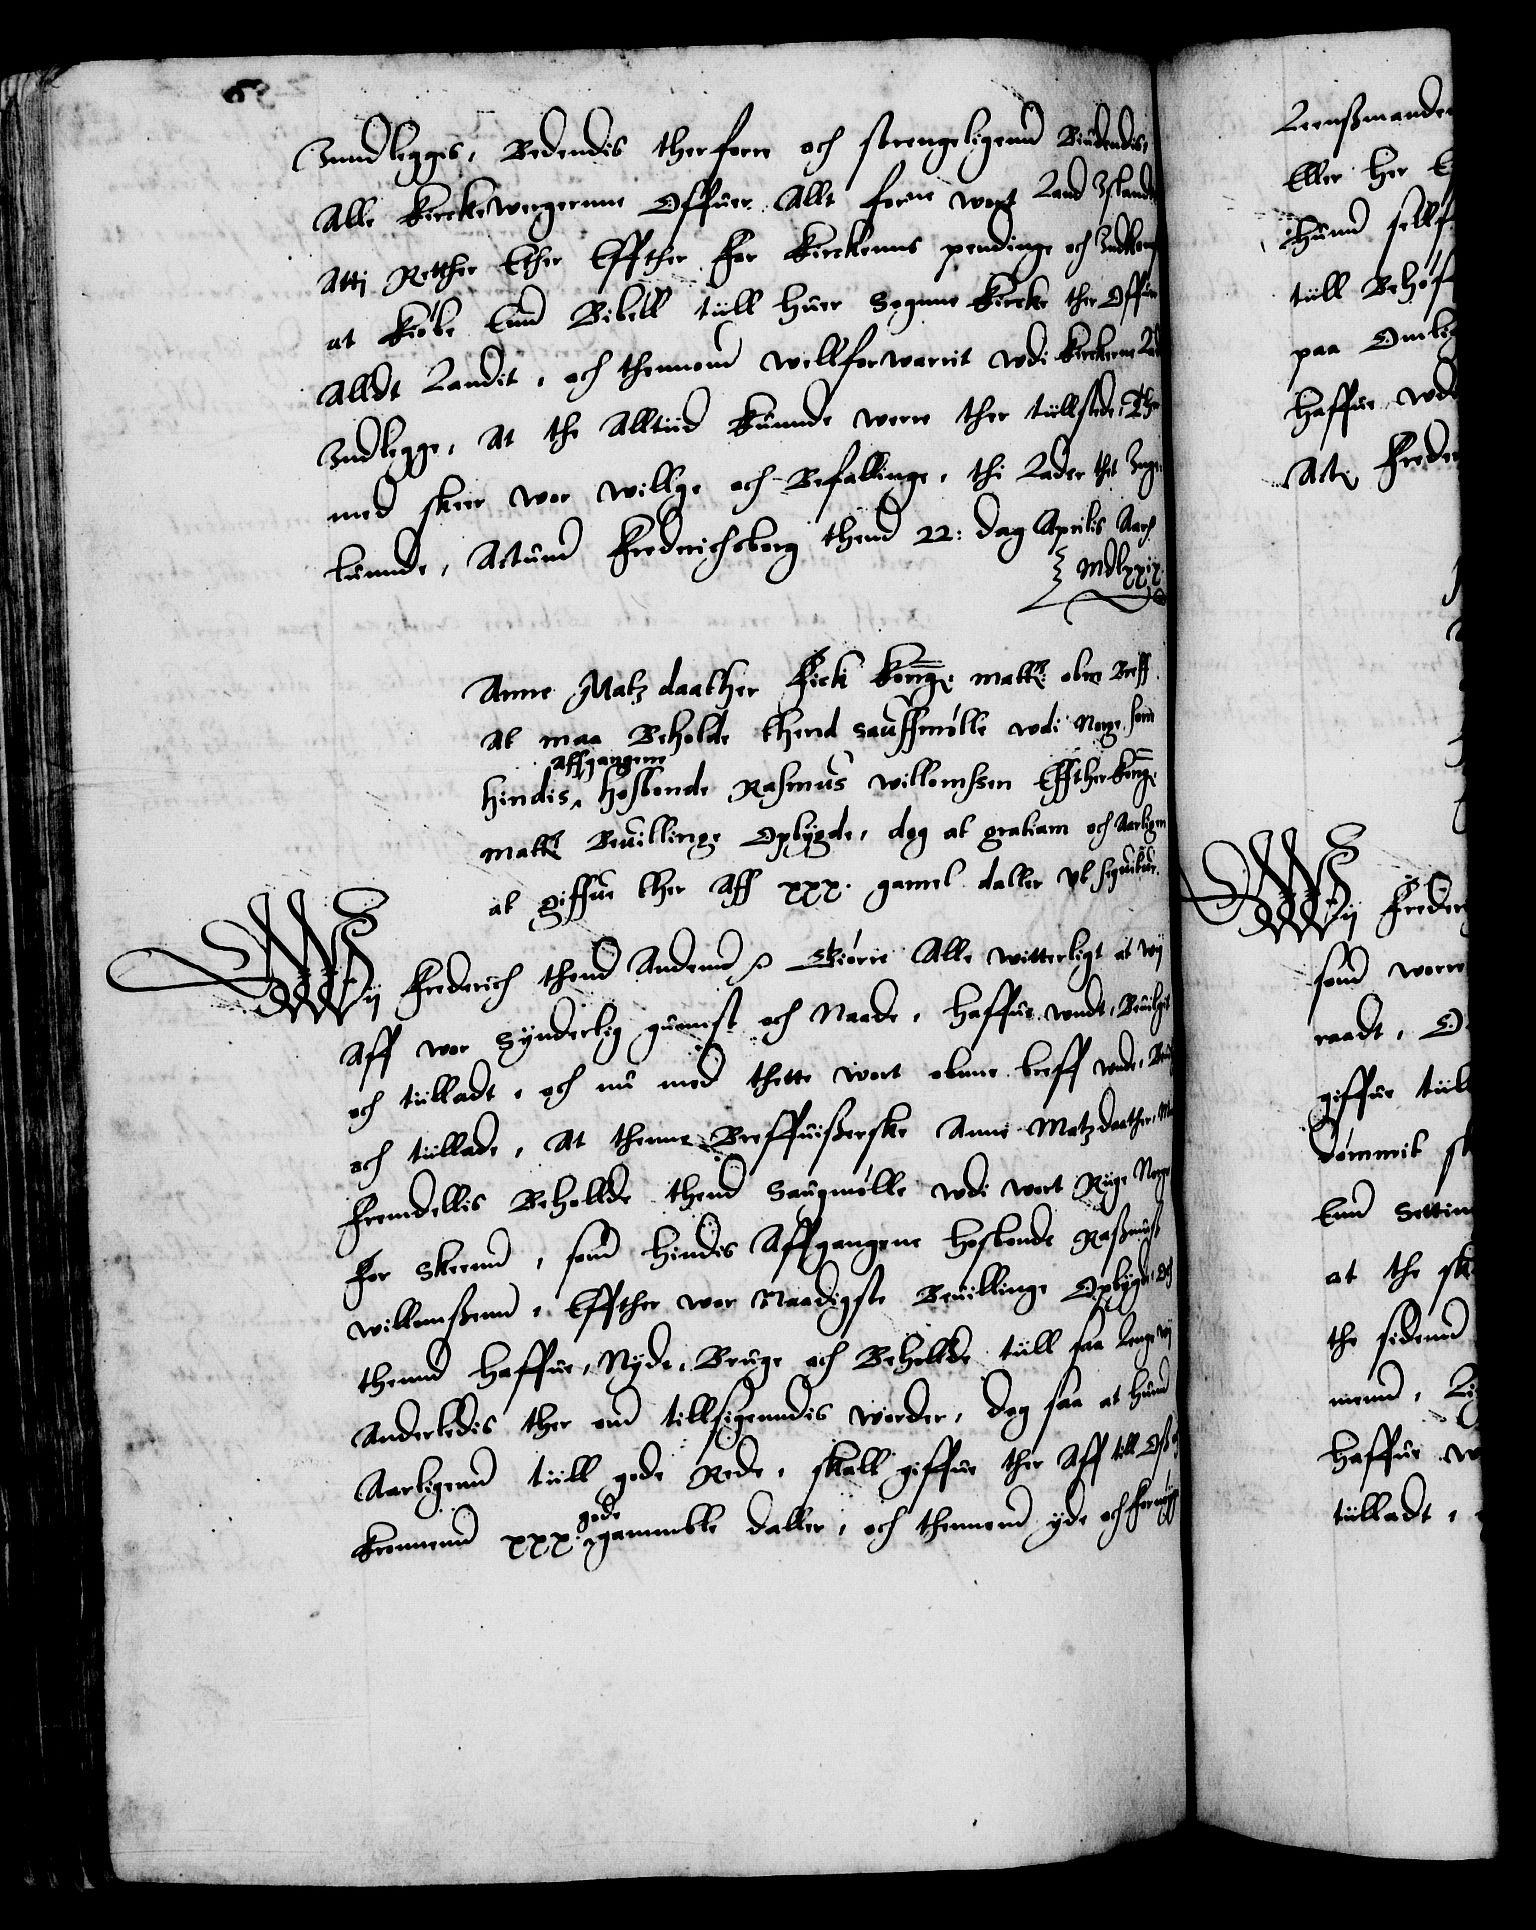 Inndlegges, Bedendis therforre och strengeligenn Biudendis,
Alle Kirckewergernne Offuer Allt forne wort Land Island
Atti Retther Ether Effther for Kirckenns pendinge och Indkomst
at kiøbe Enn Bibell till huer Sogenne Kircke ther Offuer
Alldt Landit, och thennom wellforwarrit wdi Kirckerne lade
Indlegge, At the Alltiid kunde werre ther tillstede, Ther
med skeer wor willge och Befallinge, thi Lader thet Inge-
lunde, Actum Frederichsborg thend 22: dag Aprilis Aar
MDLxxix.
Anne Matz daather Fick Konge: matts: obne Breff
At maa Beholde thend Sauffmølle wdi Norge som
hindis affgangene hosbonde Rasmus willomssen Effther Kong:
matts Beuillinge Opbygde, dog at gratiam och Aarligen
at giffue ther Aff xxx. gamel daller vt sequitur.
Wij Frederich thend Andenn Giørre Alle witterligt at wij
Aff wor Synderlig gunnst och Naade, haffue wndt, Beuilget
och tilladt, och nu med thette wort obnne breff wnde, Beuilge
och tillade, At thenne Breffuisserske Anne Matzdaather, Maa
Fremdellis Beholde thend Saugmølle wdi wort Rige Norge
For Skeenn, som hindis Affgangene hosbonde Rassmus
willomssenn, Effther wor Naadigste Beuillinge Opbygde, Och
thennd haffue, Nyde, Bruge och Beholde till saa lenge wij
Anderledis ther om tillsigenndis worder, dog saa at hun
Aarligenn till gode Rede, skall giffue ther Aff till Oss och
Kronnenn xxx: gode gammble daller, och thennom yde och fornøige
Leenssmanden
Eller her
hunn sellff
till Behoff
paa
haffue wdi
Act Freder
Wij Freder
som worre
raadt, O
giffue till
dømmit sk
Enn Settin
at the sk
the sidenn
menn,
haffue w
tilladt,